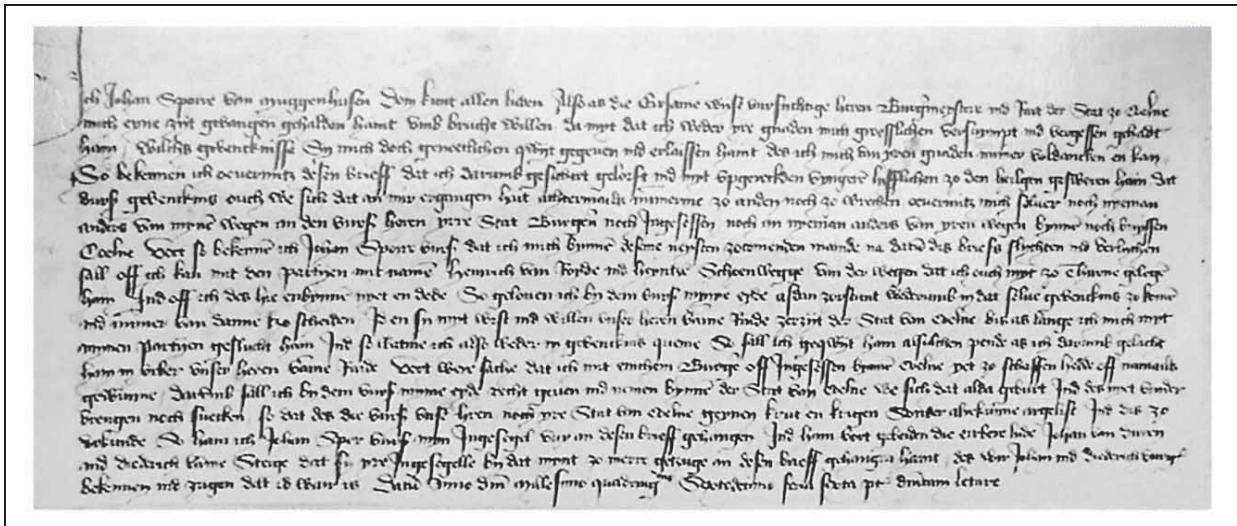 Ich Johan Sporre van Muggenhusen Doin kunt allen luden Alß as die Eirsame wyse vursichtige heren Burgermeistere ind Rait der Stat zo Coelne
mich eyne zijt gefangen gehalden haint umb bruche willen da myt dat ich weder yre gnaden mich groesslichen versumpt ind vergessen gehadt
hain wilchs gevencknisse Sy mich doch gonstlichen qwijt gegeven ind erlaissen haint des ich mich van yren gnaden nummer voldancken en kan
So bekennen ich oevermitz desen brieff dat ich darumb gesichert geloift ind myt upgereckden vyngeren lyfflichen zo den heilgen gesworen hain dat
vurß gevencknis ouch we sich dat an mir ergangen hait nummerme zo anden noch zo wrechen oevermitz mich selver noch nyeman
anders van mynen wegen an den vurß heren yrre Stat Burgeren noch Ingesessen noch an nyeman anders van yren wegen bynnen noch buyssen
Coelne Vort so bekennen ich Johan Sporre vurß dat ich mich bynnen deseme neysten zocomenden mainde na datum dis brieffs slychten ind verlychen
sall off ich kan mit den partijen mit namen Heinrich van Roide ind Schoenwegge van der wegen dat ich ouch myt zo Thurne gelegen
hain Ind off ich des hie enbynnen niet en dede So geloven ich by dem vurß myme eyde asdan zerstunt wederumb in dat selve gevencknis zo komen
ind nummer van danne zo scheiden Id en sy myt wist ind willen unser heren vamme Raide zerzijt der Stat van Coelne bis as lange ich mich myt
mynen partijen geslicht hain Ind so wanne ich alsus weder in gevencknis queme So sall ich gequijt hain alsulchen pende as ich darumb gelacht
hain in urber unser heren vamme Raide Vort were sache dat ich mit enichem Burger off Ingesessen bynnen Coelne yet zo schaffen hedde off namails
gewunne darumb sall ich by dem vurß myme eyde recht geven ind nemen bynnen der Stat van Coelne we sich dat alda geburt Ind des niet vorder
brengen noch suecken so dat des die vurß unse heren noch yre Stat van Coelne geynen krut en krigen Sonder alrekunne argelist Ind dis zo
urkunde So hain ich Johan Spor vurß myn Ingesegel vur an desen brieff gehangen Ind hain vort gebeden die eirbere lude Johan van Duren
ind Diederich vamme Steige dat sy yre Ingesegelle by dat mynt zo merre getzuge an desen brieff gehangen haint des wir Johan ind Diederich vurß
bekennen ind zugen dat id wair is Datum Anno dni Millesimo quadringmo feria sexta pt dnicam letare